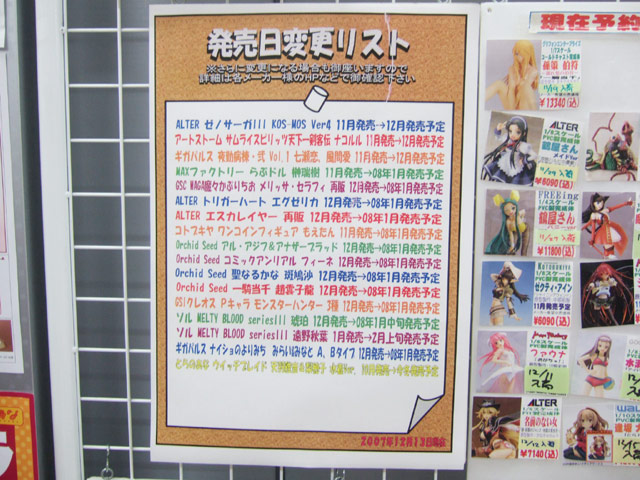 発売日変更リスト
※さらに変更になる場合も御座いますので
詳細は各メーカー様のHPなどで御確認下さい
ALTER ゼノサーガIII KOS-MOS Ver4 11月発売→12月発売予定
アートストーム サムライスピリッツ天下一剣客伝 ナコルル 11月発売→12月発売予定
ギガパルス 夜勤病棟・弐 Vol.1 七瀬恋、風間愛 11月発売→12月発売予定
MAXファクトリー らぶドル 榊瑞樹 11月発売→08年1月発売予定
メリッサ・セラフィ 再販 12月発売→08年1月発売予定
ALTER トリガーハート エグゼリカ 12月発売→08年1月発売予定
ALTER エスカレイヤー 再販 12月発売→08年1月発売予定
コトブキヤ ワンコインフィギュア もえたん 11月発売→08年1月発売予定
Orchid Seed アル・アジフ&アナザーブラッド 12月発売→08年1月発売予定
Orchid Seed コミックアンリアル フィーネ 12月発売→08年1月発売予定
Orchid Seed 聖なるかな 斑鳩沙 12月発売→08年1月発売予定
Orchid Seed 一騎当千 趙雲子龍 12月発売→08年1月発売予定
GSIクレオス Pキャラ モンスターハンター 3種 12月発売→08年1月発売予定
ソル MELTY BLOOD seriesIII 琥珀 12月発売→08年1月中旬発売予定
ソル MELTY BLOOD seriesIII 遠野秋葉 1月発売→2月上旬発売予定
ギガパルス ナイショのよりみち みらいみなと A、Bタイプ 12月発売→08年1月発売予定
とらのあな ウィッチブレイド
2007年12月13日現在
現在予約
1/7スケール
¥13340(込)
ALTER
1/8スケール
PVC製完成品
鶴屋さん
メイドVer
¥6090(込)
FREEing
1/4スケール
PVC製完成品
鶴屋さん
¥11800(込)
1/8スケール
PVC製完成品
ゼクティ・アイン
11月発売予定
¥6090(込)
1/8スケール
PVC製完成品
ファウナ
12/11
入荷
ALTER
1/8スケール
PVC製完成品
名前のない女
¥7140(込)
1/10スケール
PVC製完成品